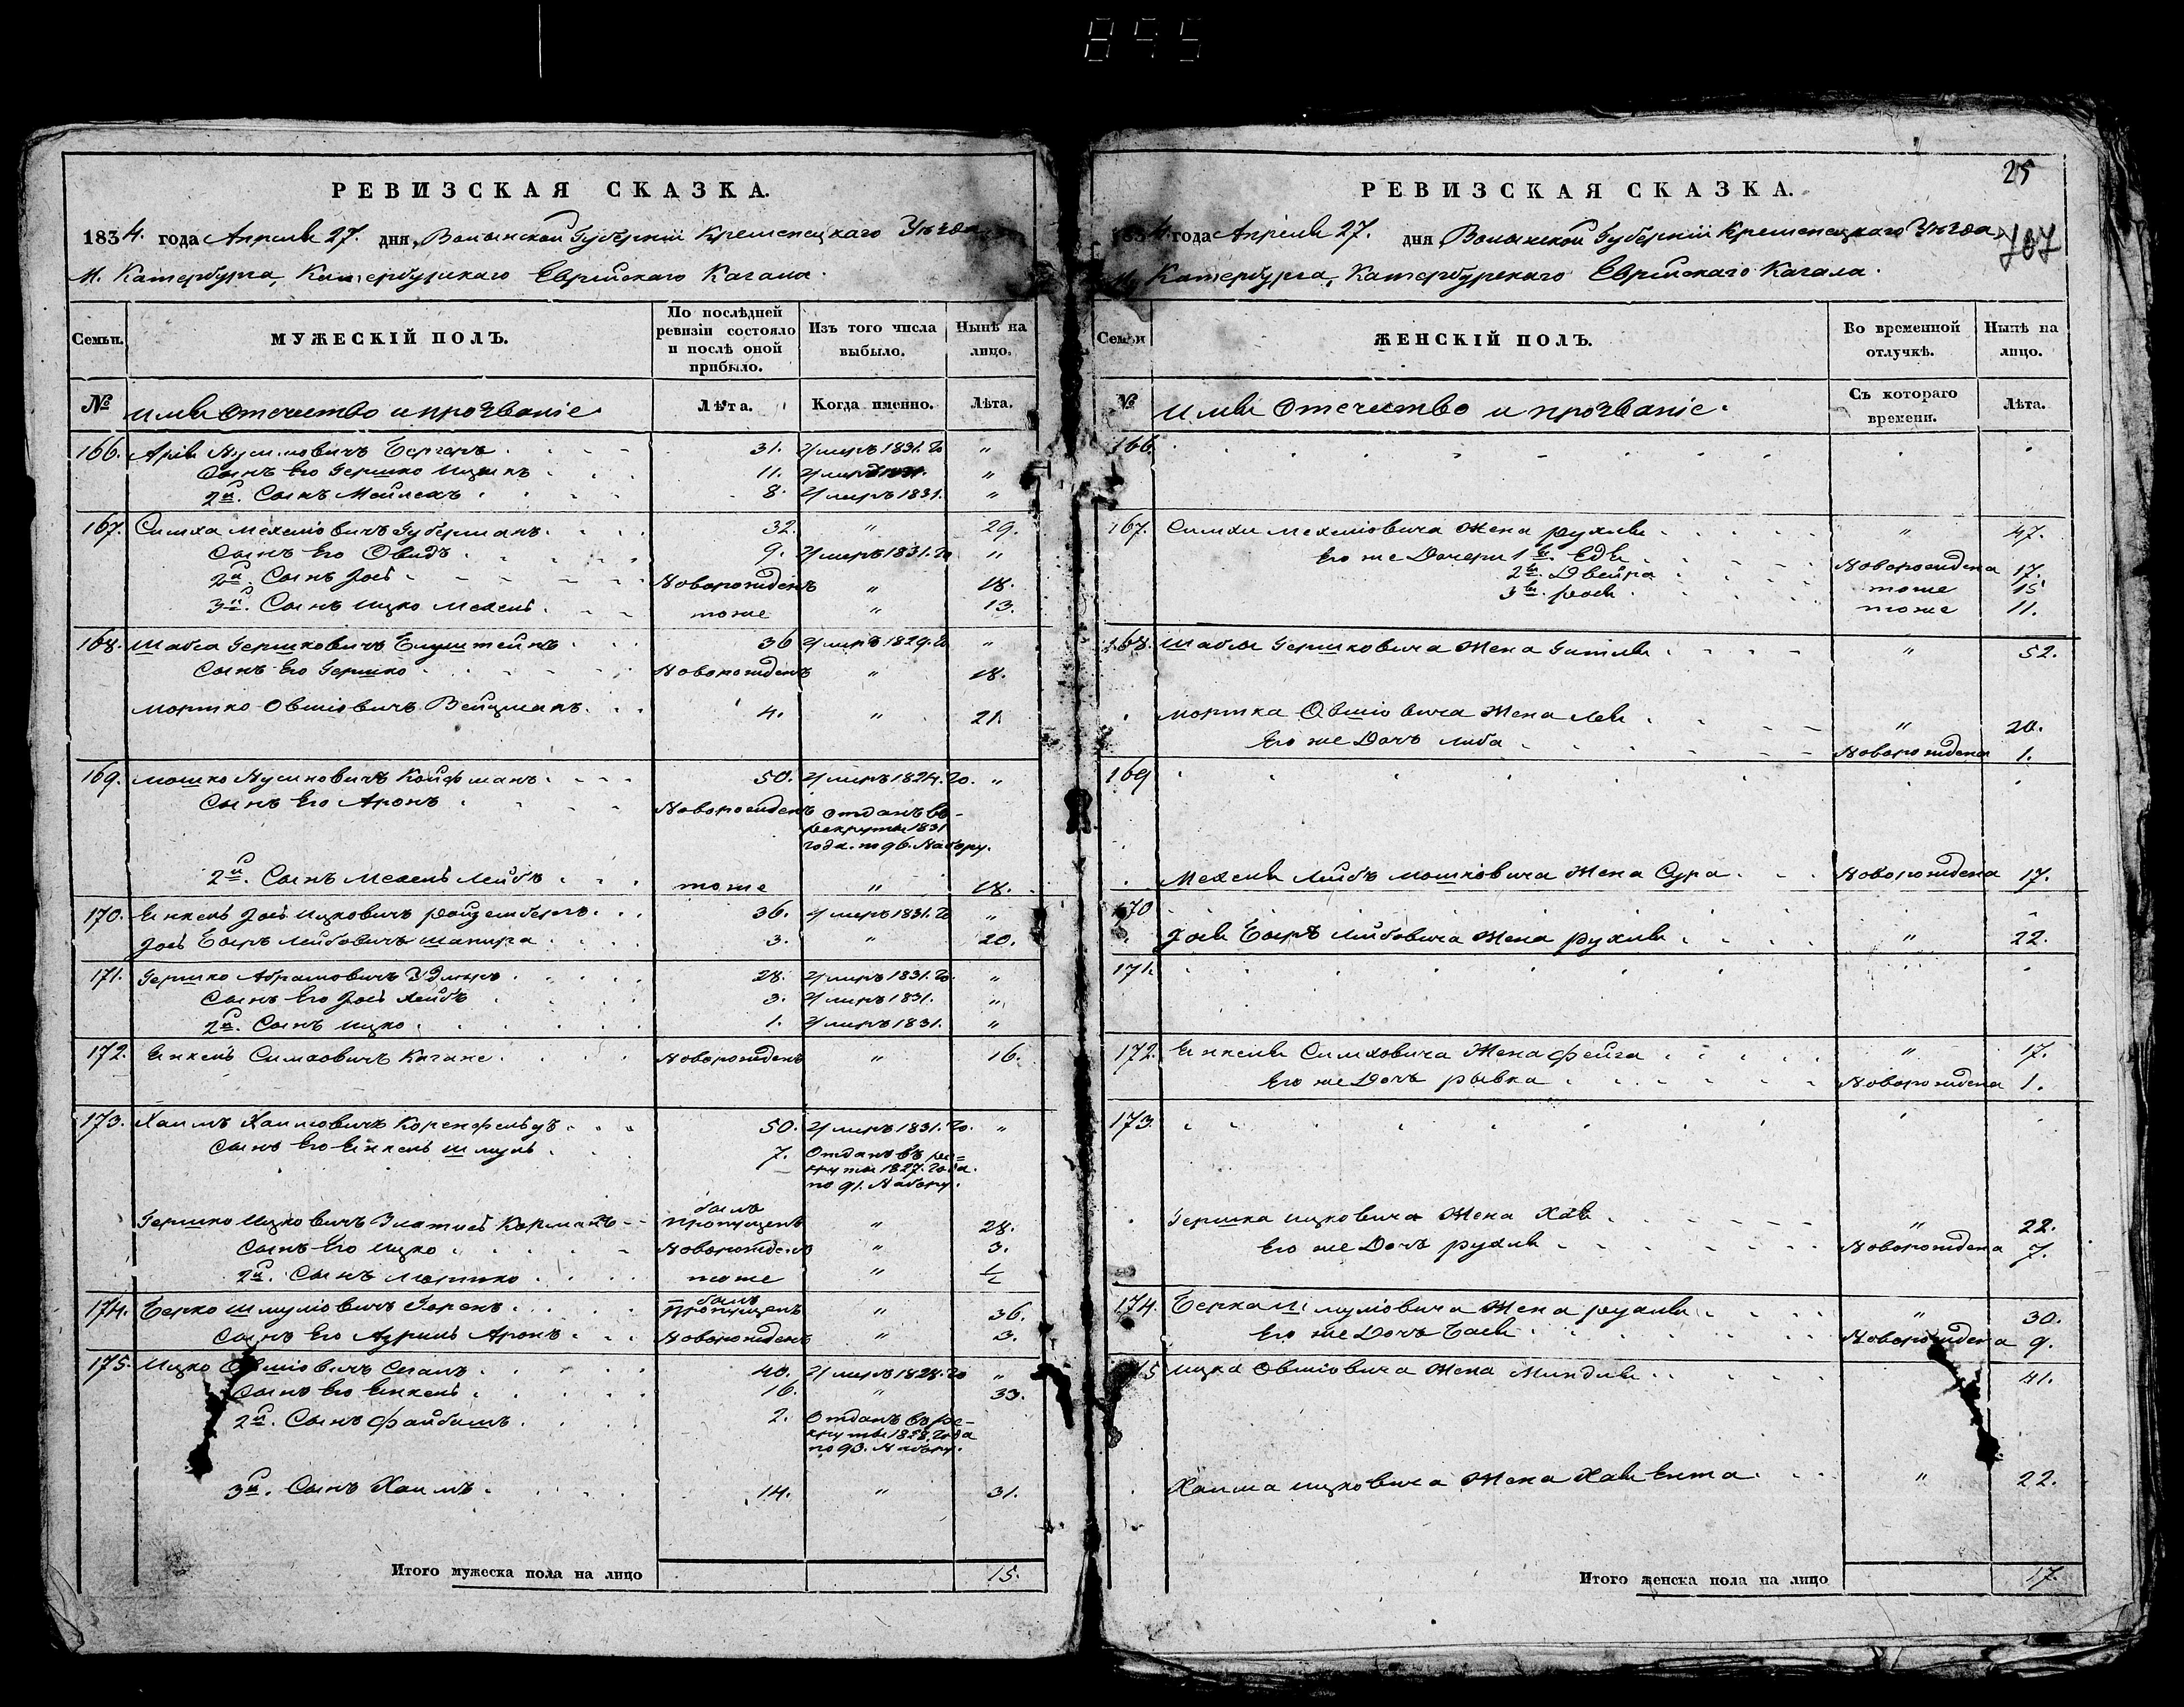 895
РЕВИЗСКАЯ СКАЗКА.
1834. года Апреля 27. дня, Волынской Губерніи Кременецкаго Уезда
М. Катербурга, Катербурскаго Еврейскаго Кагала.
Семьи.
МУЖЕСКІЙ ПОЛЪ.
По послѣдней ревизіи состояло и послѣ оной прибыло.
Изъ того числа выбыло.
Нынѣ на лицо.
№
Имя Отечество и прозваніе
Лѣта.
Когда именно.
Лѣта.
166. Арія Бергеръ 31. Умеръ 1831. го "
Сынъ Его Гершко Ицыкъ 11. Умеръ "
2й. Сынъ Мейлехъ 8. Умеръ 1831. "
167. Симха Мехелiовичъ Губерманъ 32. " 29.
Сынъ Его Овадъ 9. Умеръ 1831. го "
2й. Сынъ Jось Новорожденъ " 18.
3й. Сынъ Ицко Мехель тоже " 13.
168. Шабса Гершковичъ 36 Умеръ 1829. го "
Сынъ Его Гершко Новорожденъ " 18.
Мортко Овшiовичъ Вейцманъ 4. " 21.
169. Мошко Нусиновичъ Койфманъ 50. Умеръ 1824. го "
Сынъ Его Аронъ Новорожденъ Отданъ въ
рекруты 1831
года. по 96. Набору.
2й. Сынъ Мехель Лейбъ тоже " 18.
170. Енкель Jось Ицковичъ Ройзенбергъ 36. Умеръ 1831. го "
Jось Беръ Лейбовичъ Шапира 3. " 20.
171. Гершко Абрамовичъ 28. Умеръ 1831. го "
Сынъ Его Jось Лейбъ 3. Умеръ 1831. "
2й. Сынъ Ицко 1. Умеръ 1831. "
172. Енкель Симховичъ Кагане Новорожденъ " 16.
173. Хаимъ Хаимовичъ Коренфельдъ 50. Умеръ 1831. го "
Сынъ Его Енкель Шмуль 7. Отданъ въ ре=
круты 1827. года.
по 91. Набору.
Гершко Ицковичъ Корманъ былъ пропущенъ " 28.
Сынъ Его Ицко Новорожденъ " 3.
2й. Сынъ Мортко тоже " 1/2
174. Берко Шмулiовичъ Горенъ былъ пропущенъ " 36.
Сынъ Его Азриль Аронъ Новорожденъ " 3.
175. Ицко Овшiовичъ 40. Умеръ 1828. го "
Сынъ Его Енкель 16. " 33.
2й. Сынъ Файбишъ 2. Отданъ въ ре-
круты 1828. года
по 93. Набору.
3й. Сынъ Хаимъ 14. " 31.
Итого мужеска пола на лицо 15.
25
707
РЕВИЗСКАЯ СКАЗКА.
1834. года Апреля 27. дня Волынской Губерніи Кременецкаго Уезда,
М. Катербурга, Катербурскаго Еврейскаго Кагала.
Семьи
ЖЕНСКІЙ ПОЛЪ.
Во временной отлучкѣ.
Нынѣ на лицо.
№
Имя Отечество и прозваніе.
Съ котораго времени.
Лѣта.
166.
167. Симхи Мехелiовича Жена Рухля " 47.
Его же Дочери 1я. Едя Новорождена 17.
2я. Двейра тоже 15
3я. тоже 11.
168. Шабсы Гершковича Жена Гитля " 52.
Мортка Овшiовича Жена Лея " 20.
Его же Дочь Либа Новорождена 1.
169
Мехеля Лейбъ Мошковича Жена Сура Новорождена 17.
170
Jося Беръ Лейбовича Жена Рухля " 22.
171.
172. Енкеля Симховича Жена Фейга " 17.
Его же Дочь Рывка Новорождена 1.
173.
Гершка Ицковича Жена Хая " 22.
Его же Дочь Рухля Новорождена 7.
174. Берка Шмулiовича Жена Рухля " 30.
Его же Дочь Бася Новорождена 9.
175 Ицка Овшiовича Жена Миндля 41.
Хаима Ицковича Жена Хая Ента " 22.
Итого женска пола на лицо 17.